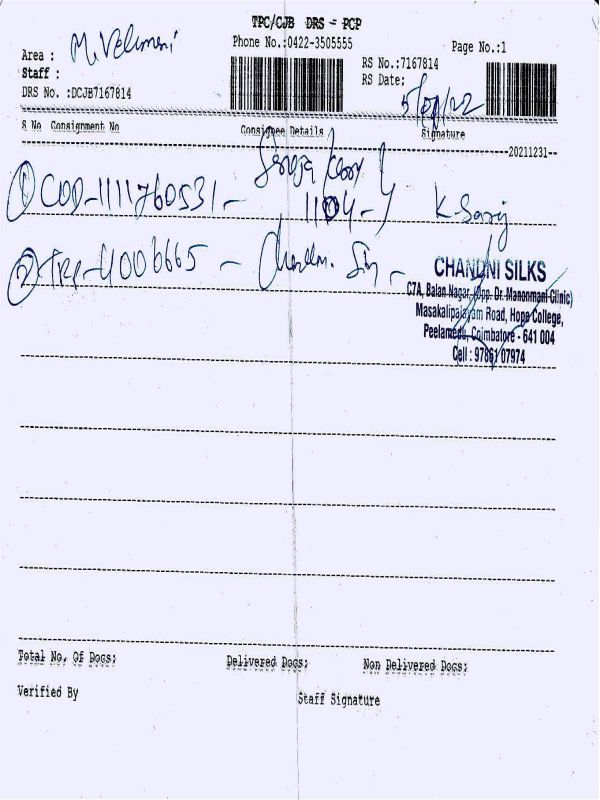 TPC/CJB DRS - PCP
Area : M. Velumani
Phone No.:0422-3505555
Page No.:1
Staff :
RS No.:7167814
DRS No. :DCJB7167814
RS Date:
S No Consignment No Consignee Details Signature
20211231
① COD-1111760531 -
1104-
② TRP-41006665 -
CHANDNI SILKS
C7A, Balan Nagar, (Opp. Dr. Manonmani Clinic)
Masakalipalayam Road, Hope College,
Peelamedu, Coimbatore - 641 004
Cell : 97861 07974
Total No. Of Docs: Delivered Docs: Non Delivered Docs:
Verified By Staff Signature